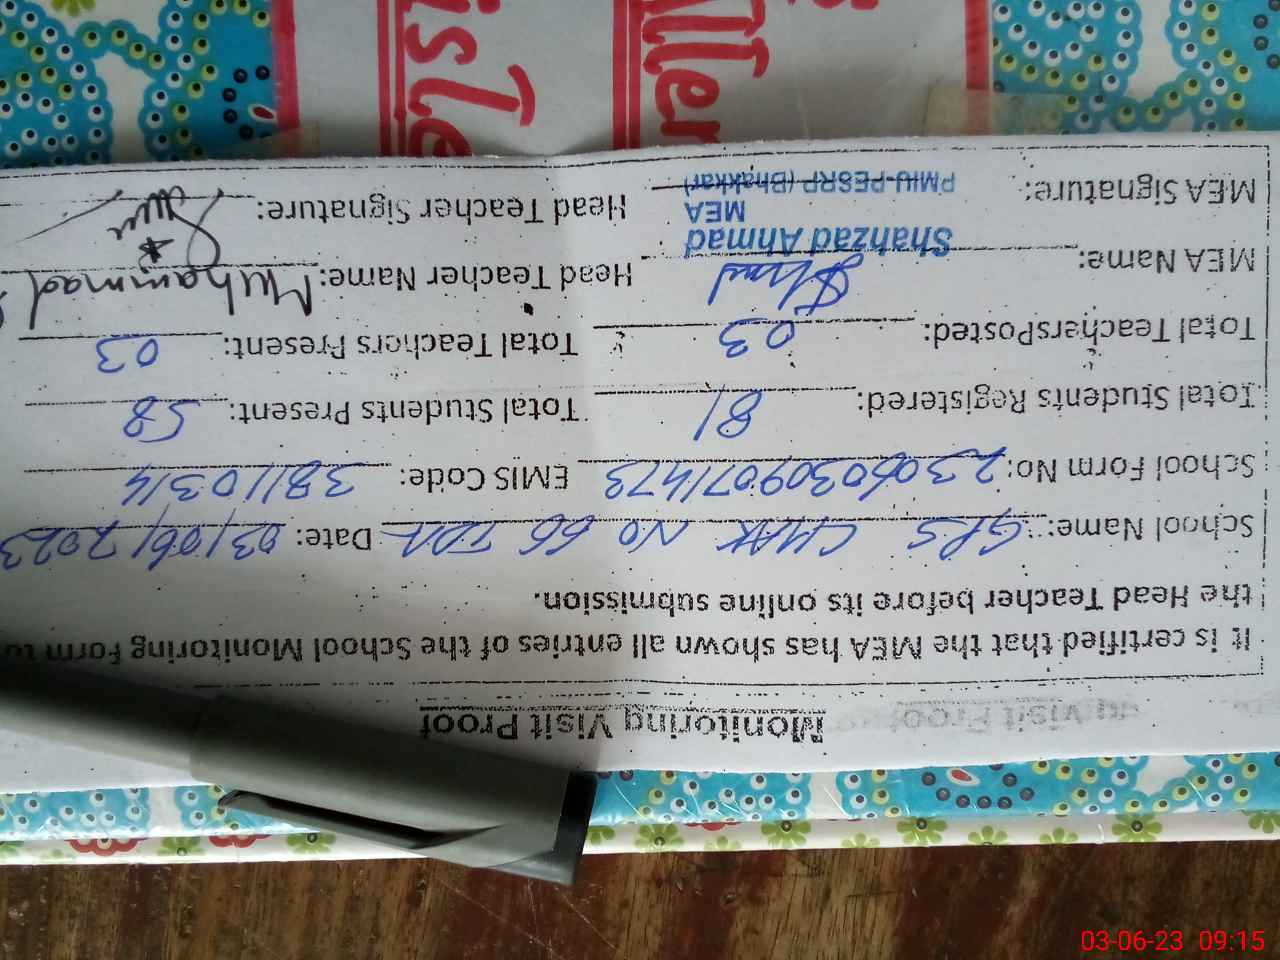 Monitoring Visit Proof
It is certified that the MEA has shown all entries of the School Monitoring Form to
the Head Teacher before its online submission.
School Name: GPS CHAK NO 66 TDA Date: 03/06/2023
School Form No: 23060309071473 EMIS Code: 38110314
Total Students Registered: 81 Total Students Present: 58
Total TeachersPosted: 03 Total Teachers Present: 03
MEA Name: Head Teacher Name: Muhammad
Shahzad Ahmad
MEA
PMIU-PESRP (Bhakkar)
MEA Signature: Head Teacher Signature:
03-06-23 09:15